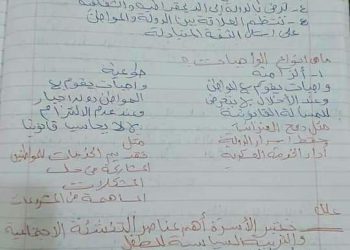 ٤- ترقى بالدولة إلى الديمقراطية والتعددية
٥- تنتظم العلاقة بين الدولة والمواطن
على أساس الثقة المتبادلة
ما هي أنواع الواجبات
١- إلزامية
طوعية
واجبات يقوم بها المواطن
واجبات يقوم بها
وعند الإخلال يتعرض
المواطن دون إجبار
للمسائلة القانونية
وعند عدم الالتزام
لا يحاسب قانونيا
مثل دفع الضرائب
مثل
حفظ أسرار الدولة
تقديم الخدمات للمواطنين
أداء الخدمة العسكرية
المشاركة في حل
المشكلات
المساهمة في المشروعات
علل
تعتبر الأسرة أهم عناصر التنشئة الاجتماعية
والتربية السياسية للطفل